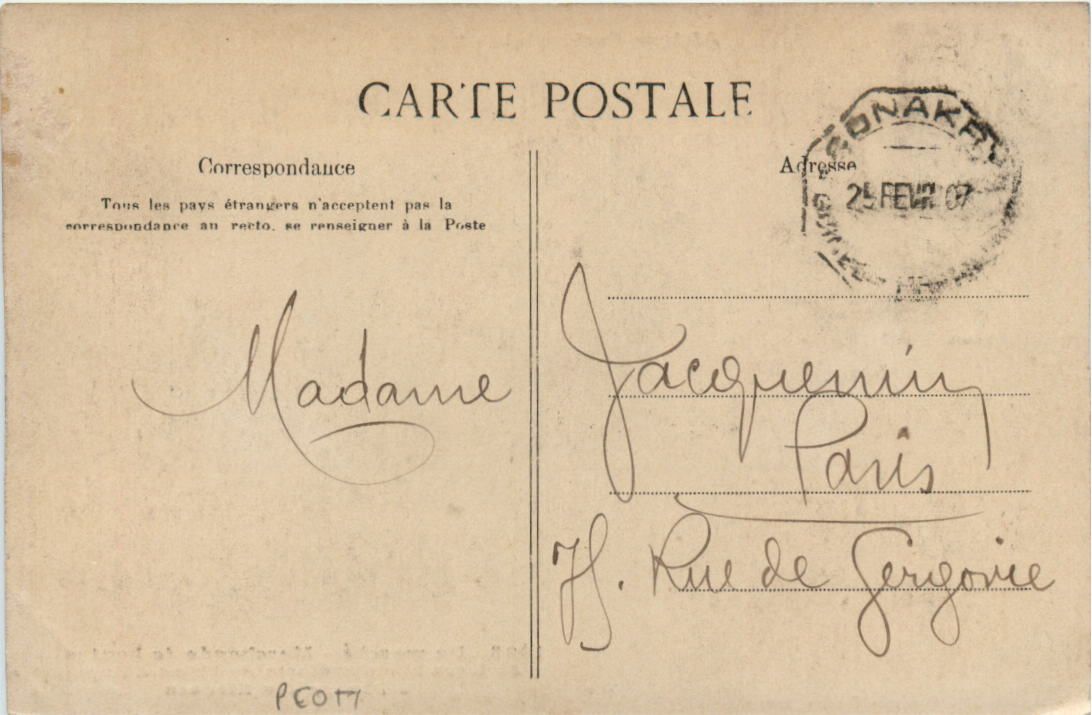 CARTE POSTALE
Correspondance
Tous les pays étrangers n'acceptent pas la
correspondance au recto, se renseigner à la Poste
Adresse
CONAKRY
25 FEVR 07
Madame
Jacquemin
Paris
75. Rue de Gergovie